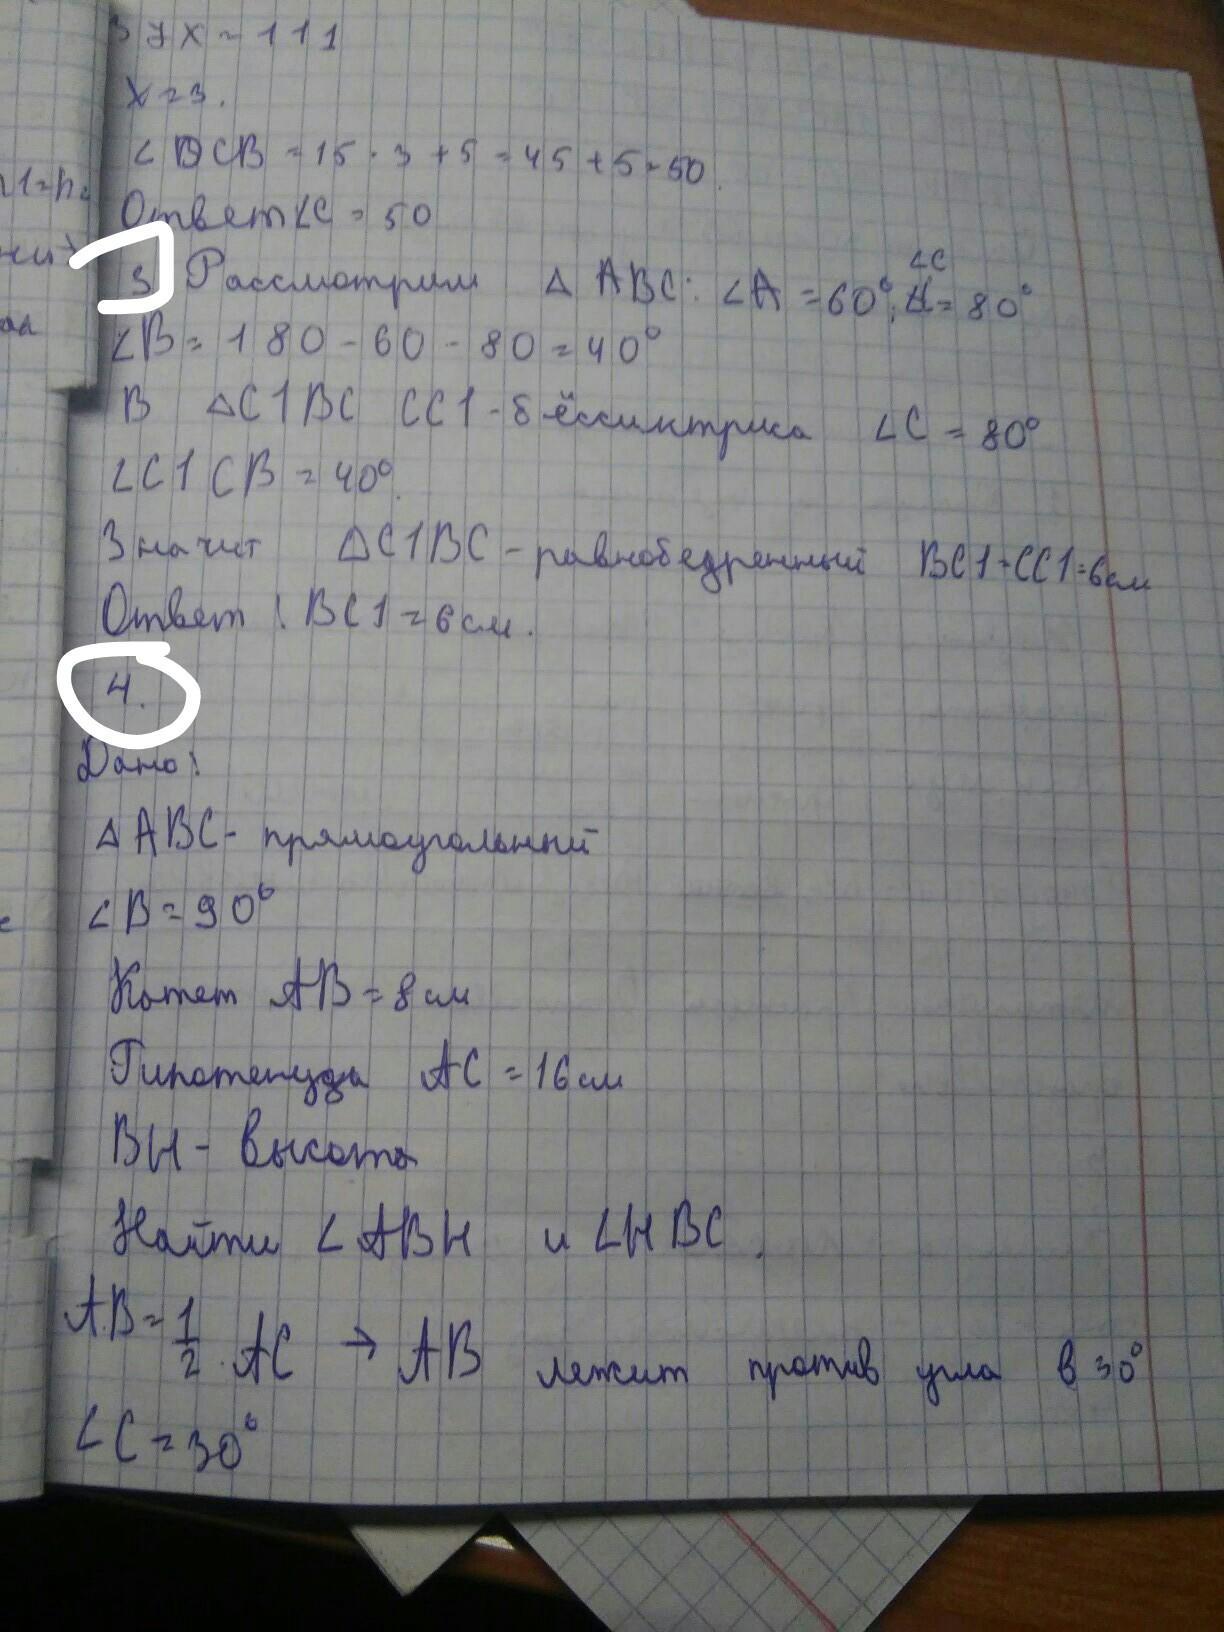 37x=111
x=3.
∠DCB=15·3+5=45+5=50.
Ответ ∠C=50
3 Рассмотрим △ABC: ∠A=60°; ∠C=80°
∠B=180-60-80=40°
В △C1BC CC1-бёссиктриса ∠C=80°
∠C1CB=40°.
Значит △C1BC-равнобедренный BC1=CC1=6см
Ответ: BC1=6см.
4.
Дано:
△ABC-прямоугольный
∠B=90°
Катет AB=8см
Гипотенуза AC=16см
BH-высота
Найти ∠ABH и ∠HBC.
AB=1/2·AC → AB лежит против угла в 30°
∠C=30°